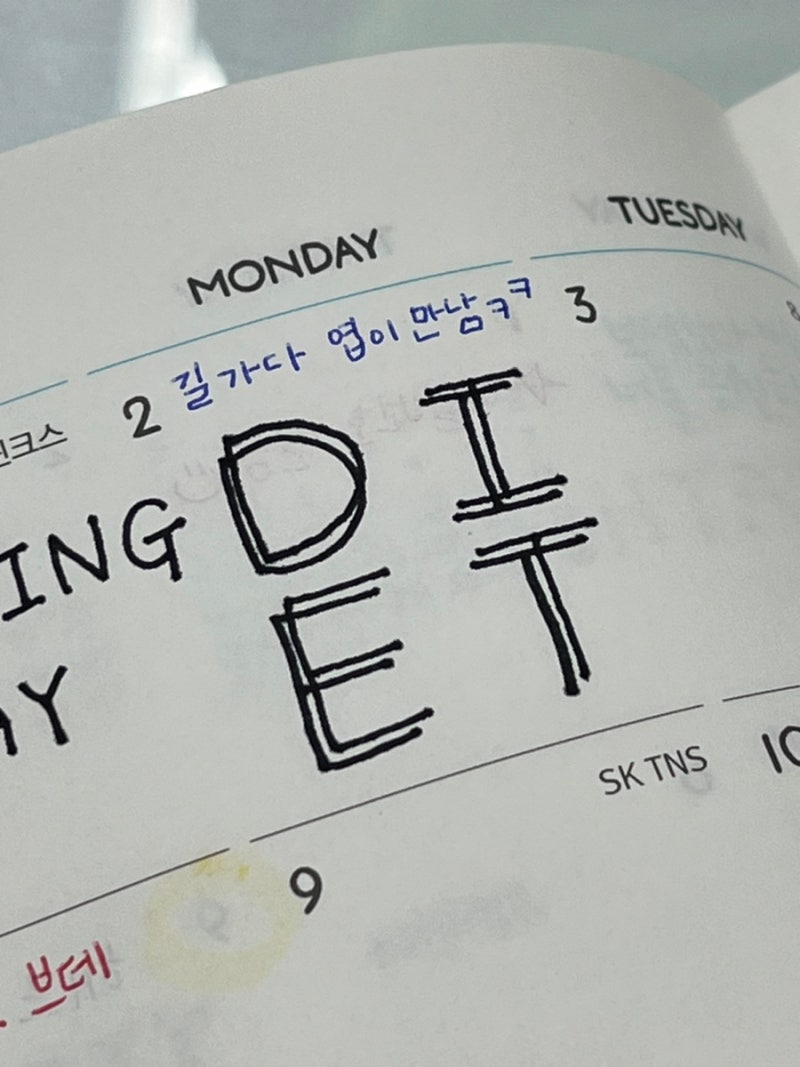 MONDAY
TUESDAY
2 길가다 엽이 만남ㅋㅋ
3
DI
ING
ET
SK TNS
10
9
브데